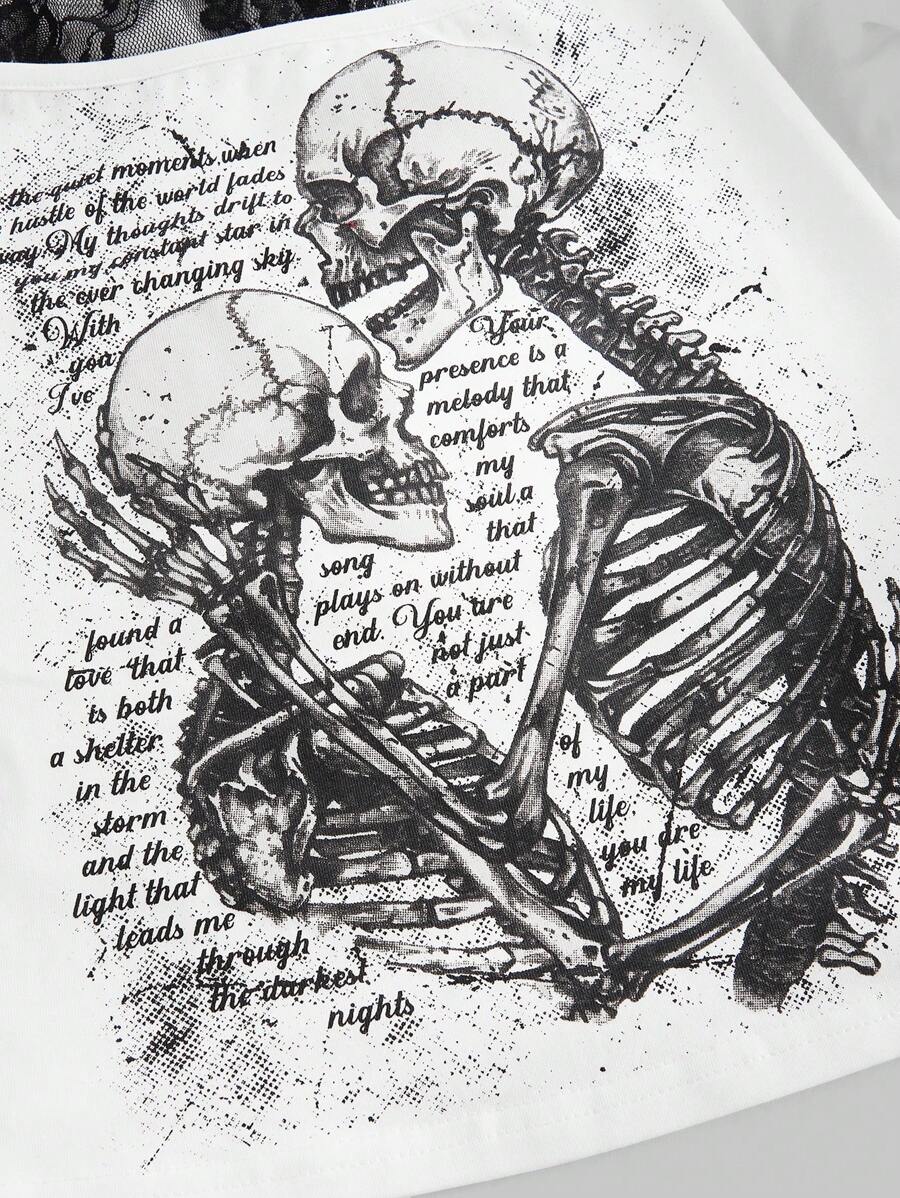 the quiet moments when
hustle of the world fades
way. My thoughts drift to
you my constant star in
the ever changing sky.
With
you
I've
found a
love that
is both
a shelter
in the
storm
and the
light that
leads me
through
the darkest
nights
Your
presence is a
melody that
comforts
my
soul a
that
song
plays on without
end. You are
not just
a part
of
my
life
you are
my life.